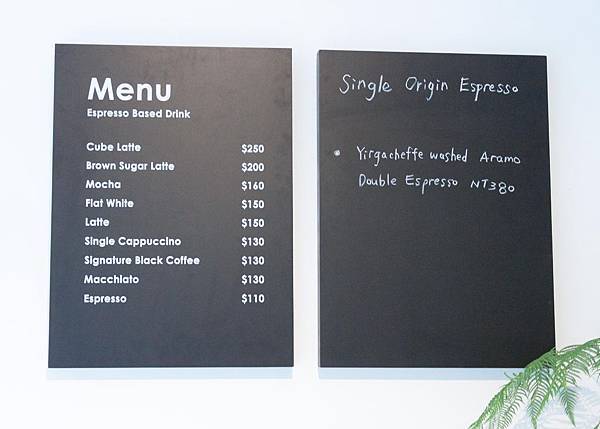 Menu
Espresso Based Drink
Cube Latte $250
Brown Sugar Latte $200
Mocha $160
Flat White $150
Latte $150
Single Cappuccino $130
Signature Black Coffee $130
Macchiato $130
Espresso $110
Single Origin Espresso
• Yirgacheffe washed Aramo
Double Espresso NT380